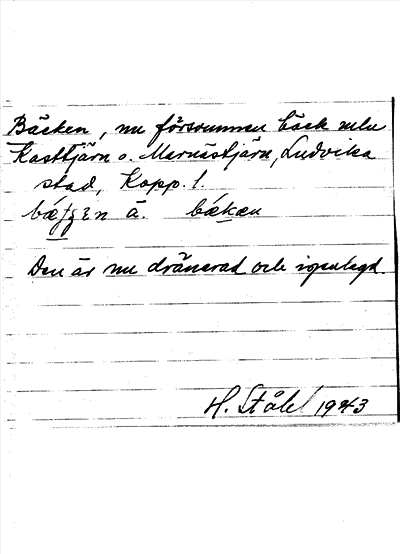 Bäcken, nu försvunnen bäck mln
Kasttjärn o. Marnästjärn, Ludvika
stad, Kopp. l.
á. bækæn
Den är nu dränerad och igenlagd.
H. Ståhl 1943